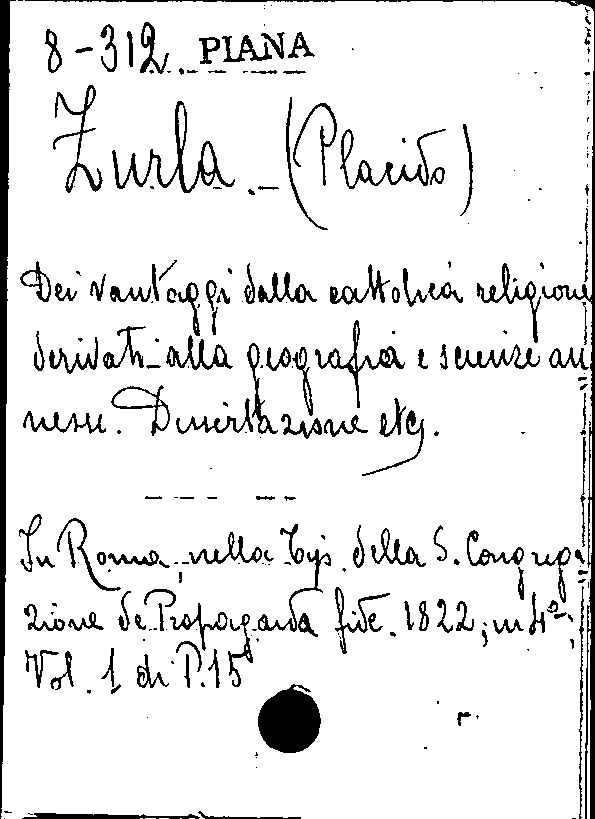 8-312. PIANA
Zurla. - (Placido)
Dei vantaggi dalla cattolica religione
derivati alla geografia e scienze an
nesse. Dissertazione etc.
In Roma, nella Typ. della S. Congrega
zione de Propaganda fide. 1822; in 4º;
Vol. 1 di P. 15